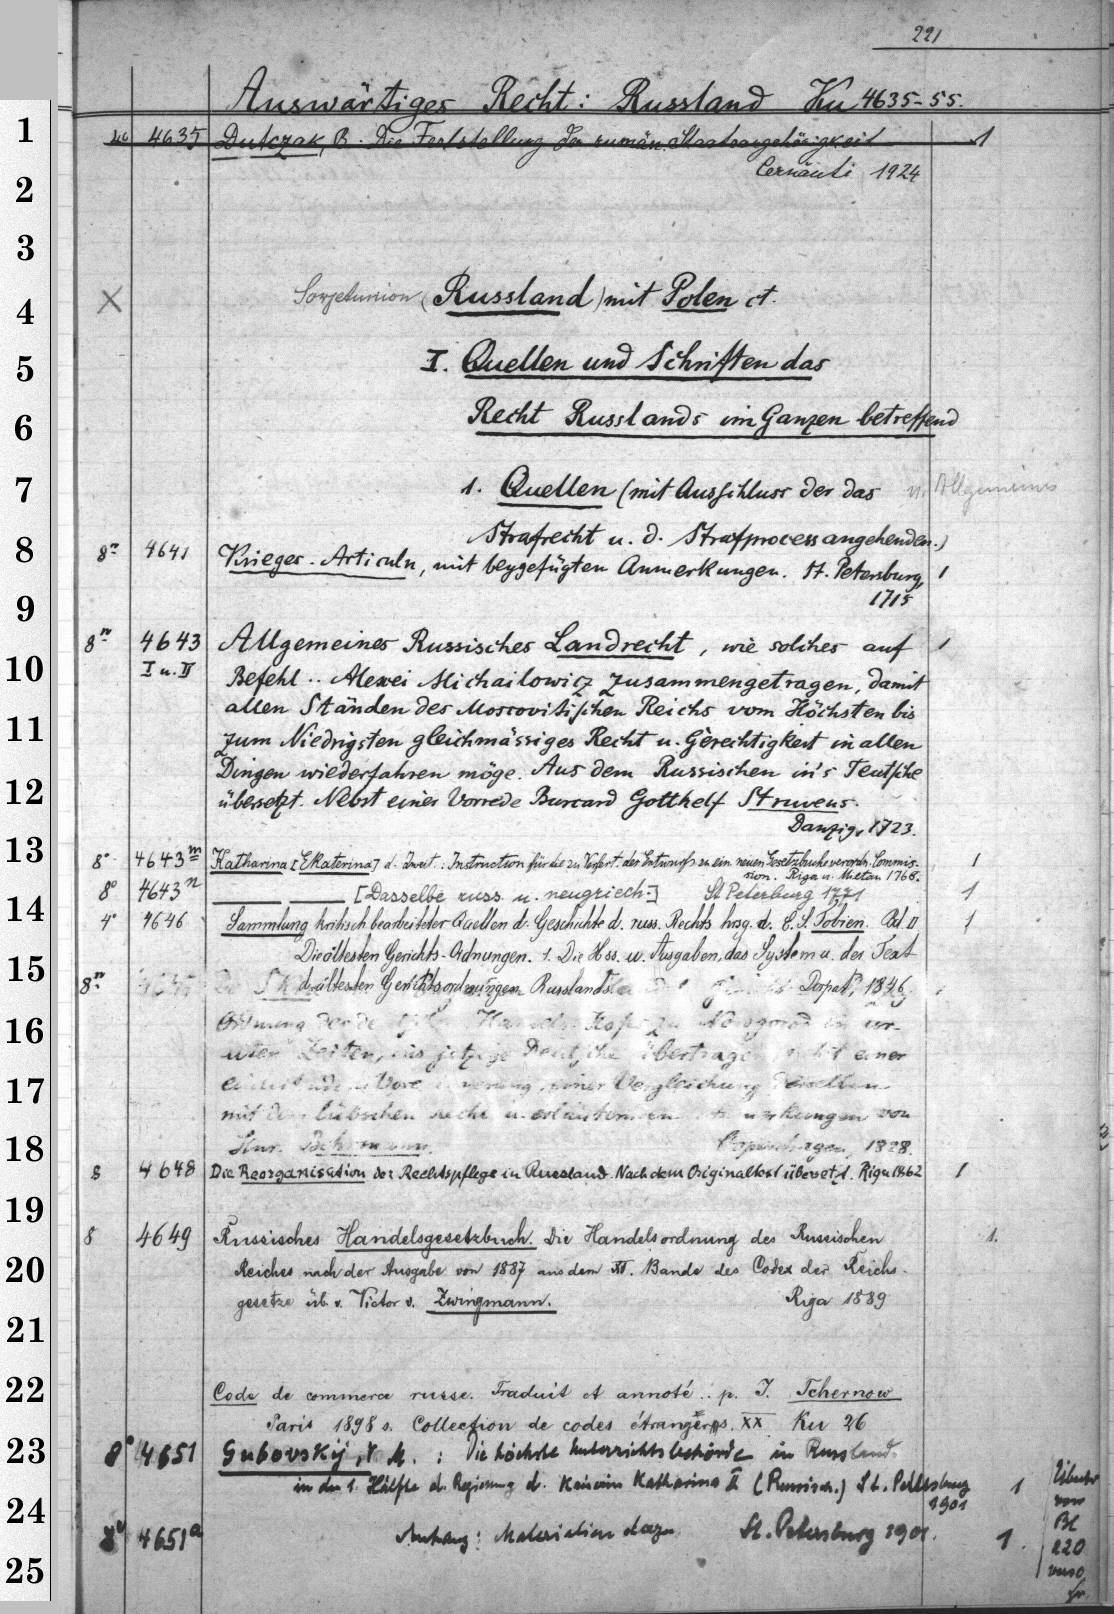 221
Auswärtiges Recht: Russland Ku 4635-55.
1
4° 4635 Dutczak, B. Die Feststellung der rumän. Staatsangehörigkeit 1
Cernăuti 1924
2
3
4
X Sovjetunion (Russland) mit Polen ct.
5
I. Quellen und Schriften das
6
Recht Russlands im Ganzen betreffend
7
1. Quellen (mit Ausschluss der das u. Allgemeines
8
Strafrecht u. d. Strafprocess angehenden.)
8° 4641 Krieges-Articuln, mit beygefügten Anmerkungen. St. Petersburg, 1
1715
9
8° 4643 Allgemeines Russisches Landrecht, wie solches auf 1
10
I u. II Befehl .. Alexei Michailowicz zusammengetragen, damit
allen Ständen des Moscovitischen Reichs vom Höchsten bis
11
zum Niedrigsten gleichmässiges Recht u. Gerechtigkeit in allen
Dingen wiederfahren möge. Aus dem Russischen in's Teutsche
12
übersetzt. Nebst einer Vorrede Burcard Gotthelf Struvens.
Danzig, 1723.
13
8° 4643m Katharina [Ekaterina] d. Zweit.: Instruction für die zu Verfert. des Entwurfs zu ein. neuen Gesetzbuche verordn. Commis- 1
sion. Riga u. Mietau 1768.
8° 4643n [Dasselbe russ. u. neugriech.] St Peterburg 1771 1
14
4° 4646 Sammlung kritisch bearbeiteter Quellen d. Geschichte d. russ. Rechts hrsg. d. E. S. Tobien. Bd. II 1
Die ältesten Gerichts-Ordnungen. 1. Die Hss. u. Ausgaben, das System u. der Text
15
8° d. ältesten Gerichtsordnungen Russlands Dorpat, 1846.
16
Ordnung des de Hofes zu Novgorod in
Zeiten, ins jetzige Deutsche übertragen, mit einer
17
einer Vergleichung derselben
mit dem lübschen Recht u. erläuternden von
18
Behrmann. Copenhagen, 1828.
8 4648 Die Reorganisation der Rechtspflege in Russland. Nach dem Originaltext übersetzt. Riga 1862 1
19
8 4649 Russisches Handelsgesetzbuch. Die Handelsordnung des Russischen 1.
20
Reiches nach der Ausgabe von 1887 aus dem XI. Bande des Codex der Reichs-
gesetze üb. v. Victor v. Zwingmann. Riga 1889
21
22
Code de commerce russe. Traduit et annoté .. p. J. Tchernow
Paris 1898 s. Collection de codes étrangers. XX Ku 26
23
8° 4651 Gubovskij, V. M.: Die höchste Unterrichtsbehörde in Russland.
in der 1. Hälfte d. Regierung d. Kaiserin Katharina II (Russisch.) St. Petersburg 1
1901
24
8° 4651a Anhang: Materialien dazu St. Petersburg 1901. 1.
25
von
Bl
220
verso